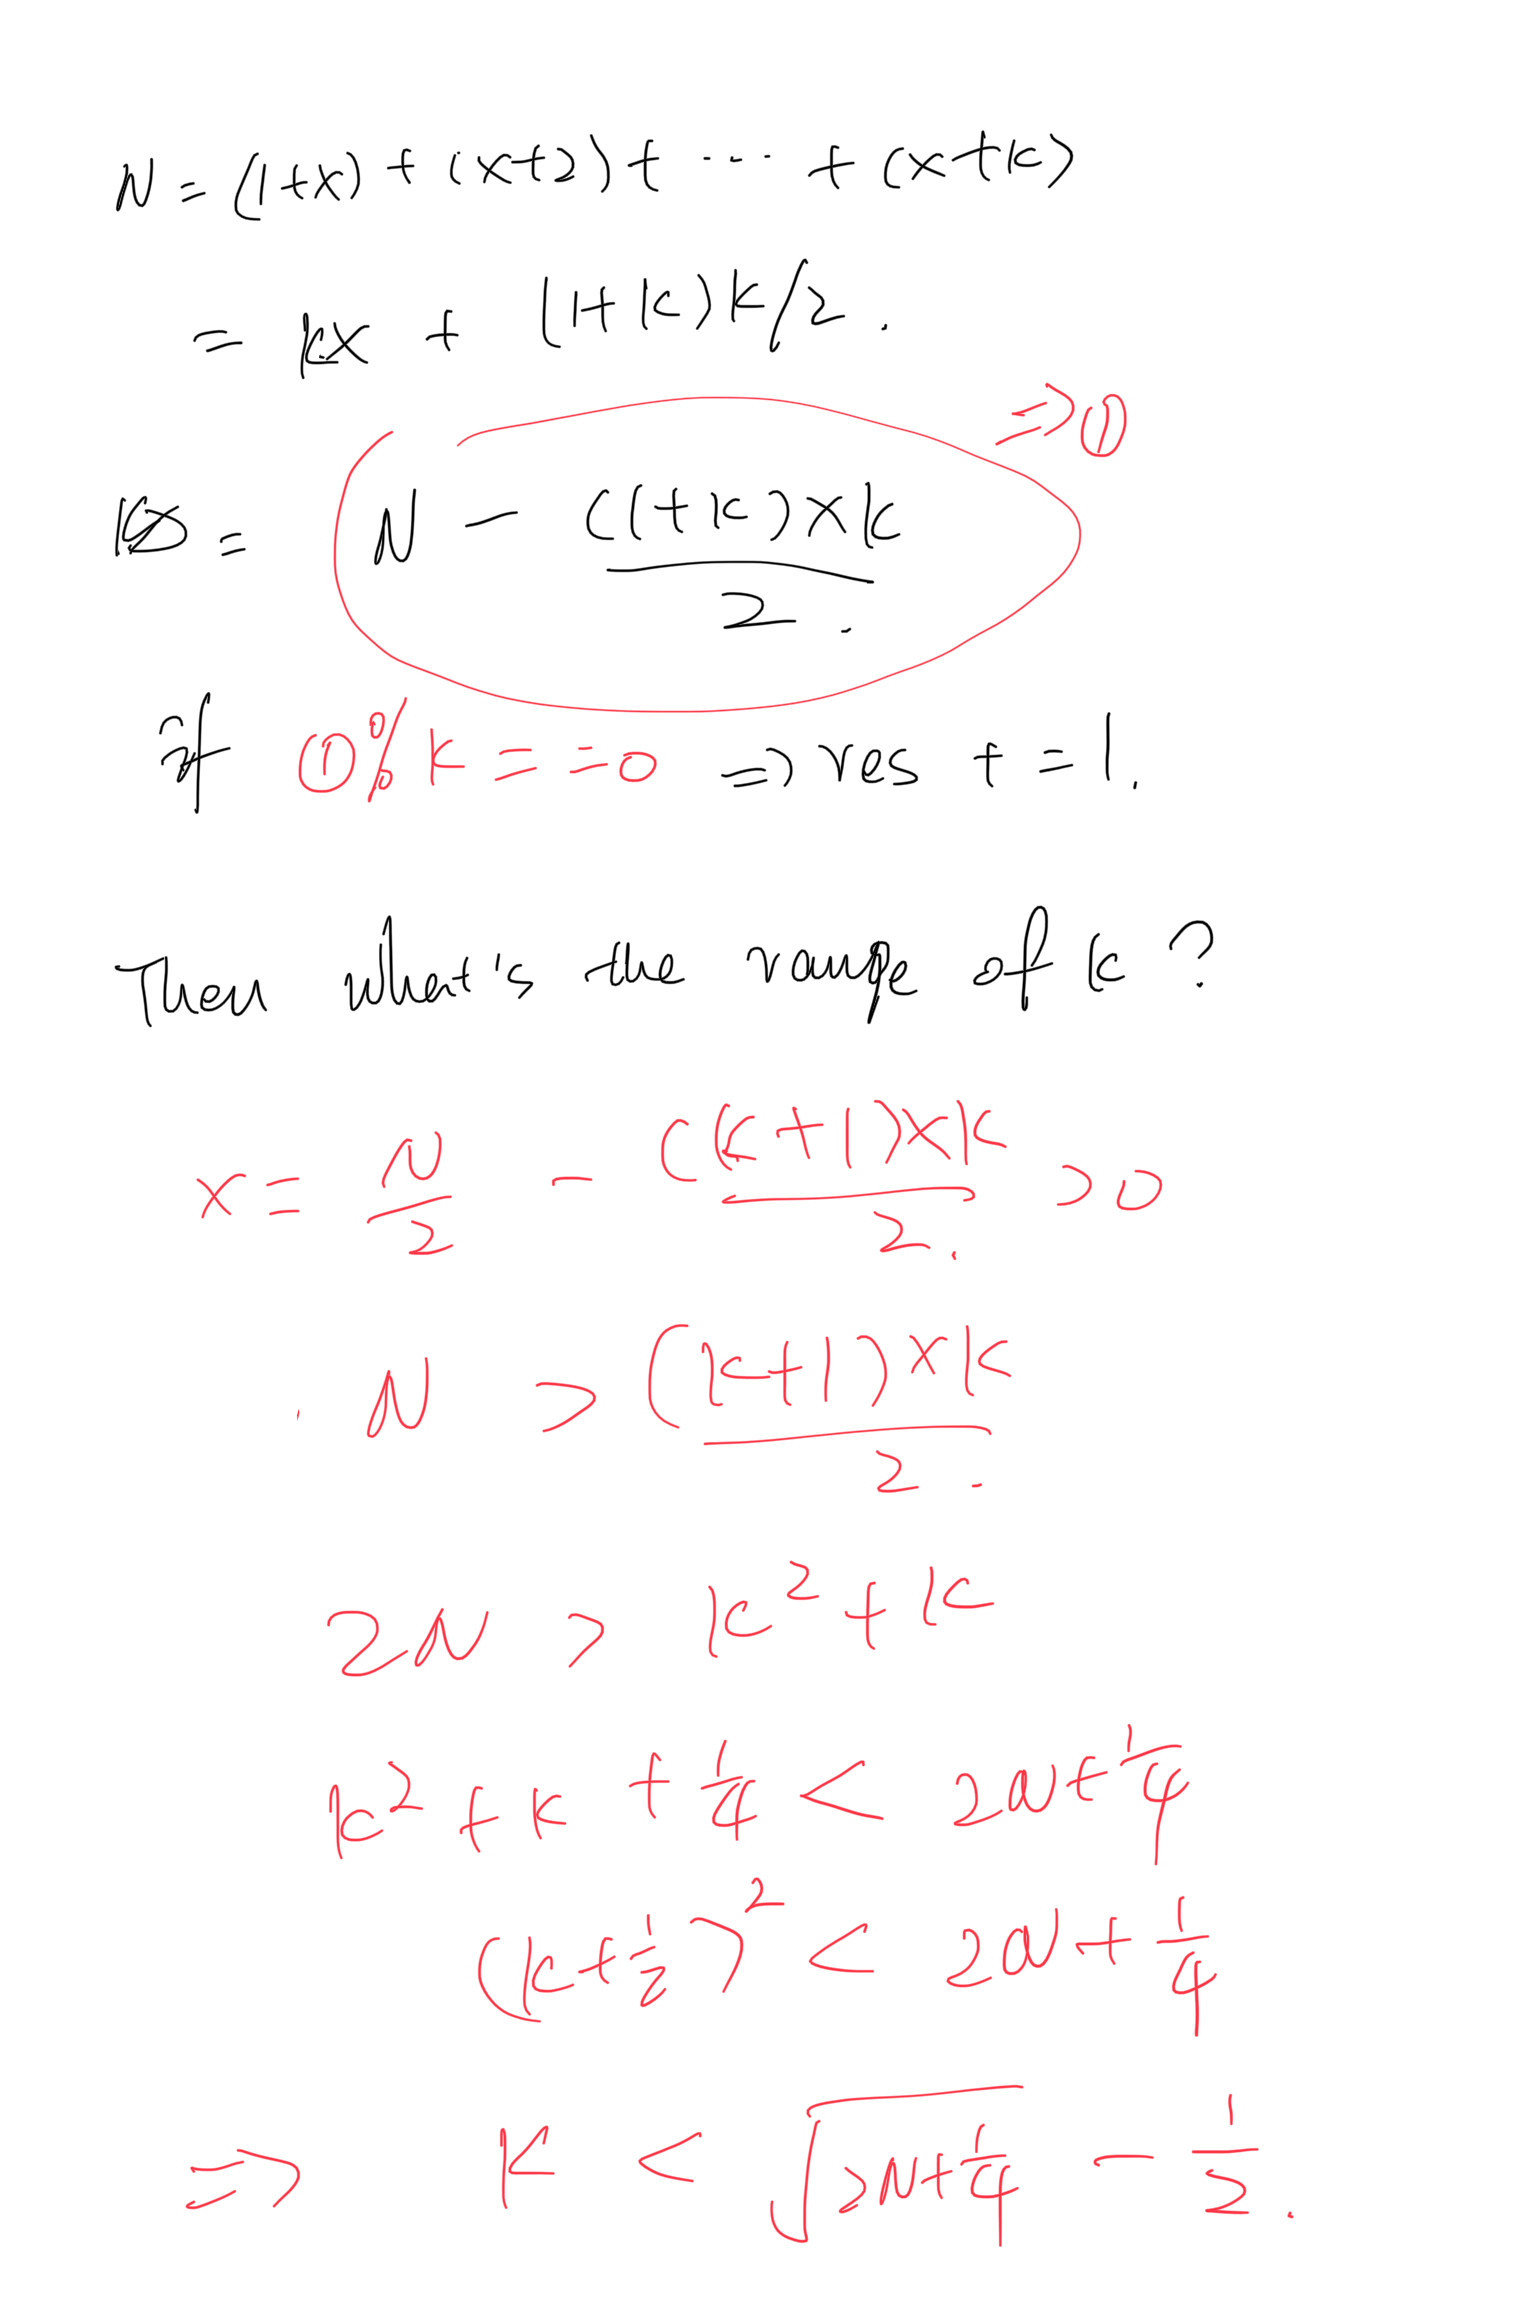 N = (1+x) + (x+2) + ... + (x+k)
= kx + (1+k)k/2.
=> ①
= N - ((1+k)×k)/2.
if ① % k == 0 => res += 1.
Then what's the range of k ?
x = N/2 - ((k+1)×k)/2. > 0
N > ((k+1)×k)/2.
2N > k² + k
k² + k + 1/4 < 2N + 1/4
(k + 1/2)² < 2N + 1/4
=> K < √(2N + 1/4) - 1/2.